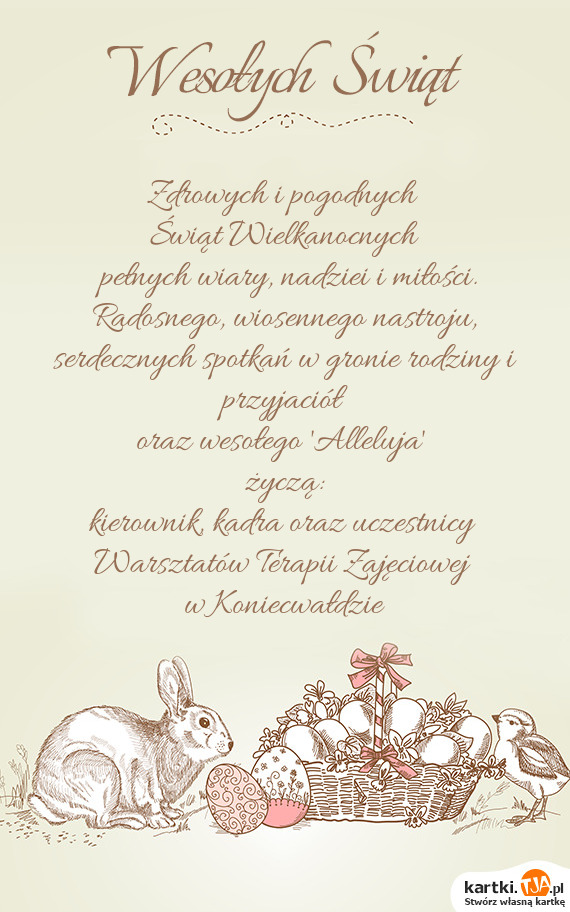 Wesołych Świąt
Zdrowych i pogodnych
Świąt Wielkanocnych
pełnych wiary, nadziei i miłości.
Radosnego, wiosennego nastroju,
serdecznych spotkań w gronie rodziny i
przyjaciół
oraz wesołego 'Alleluja'
życzą:
kierownik, kadra oraz uczestnicy
Warsztatów Terapii Zajęciowej
w Koniecwałdzie
kartki.TJA.pl
Stwórz własną kartkę